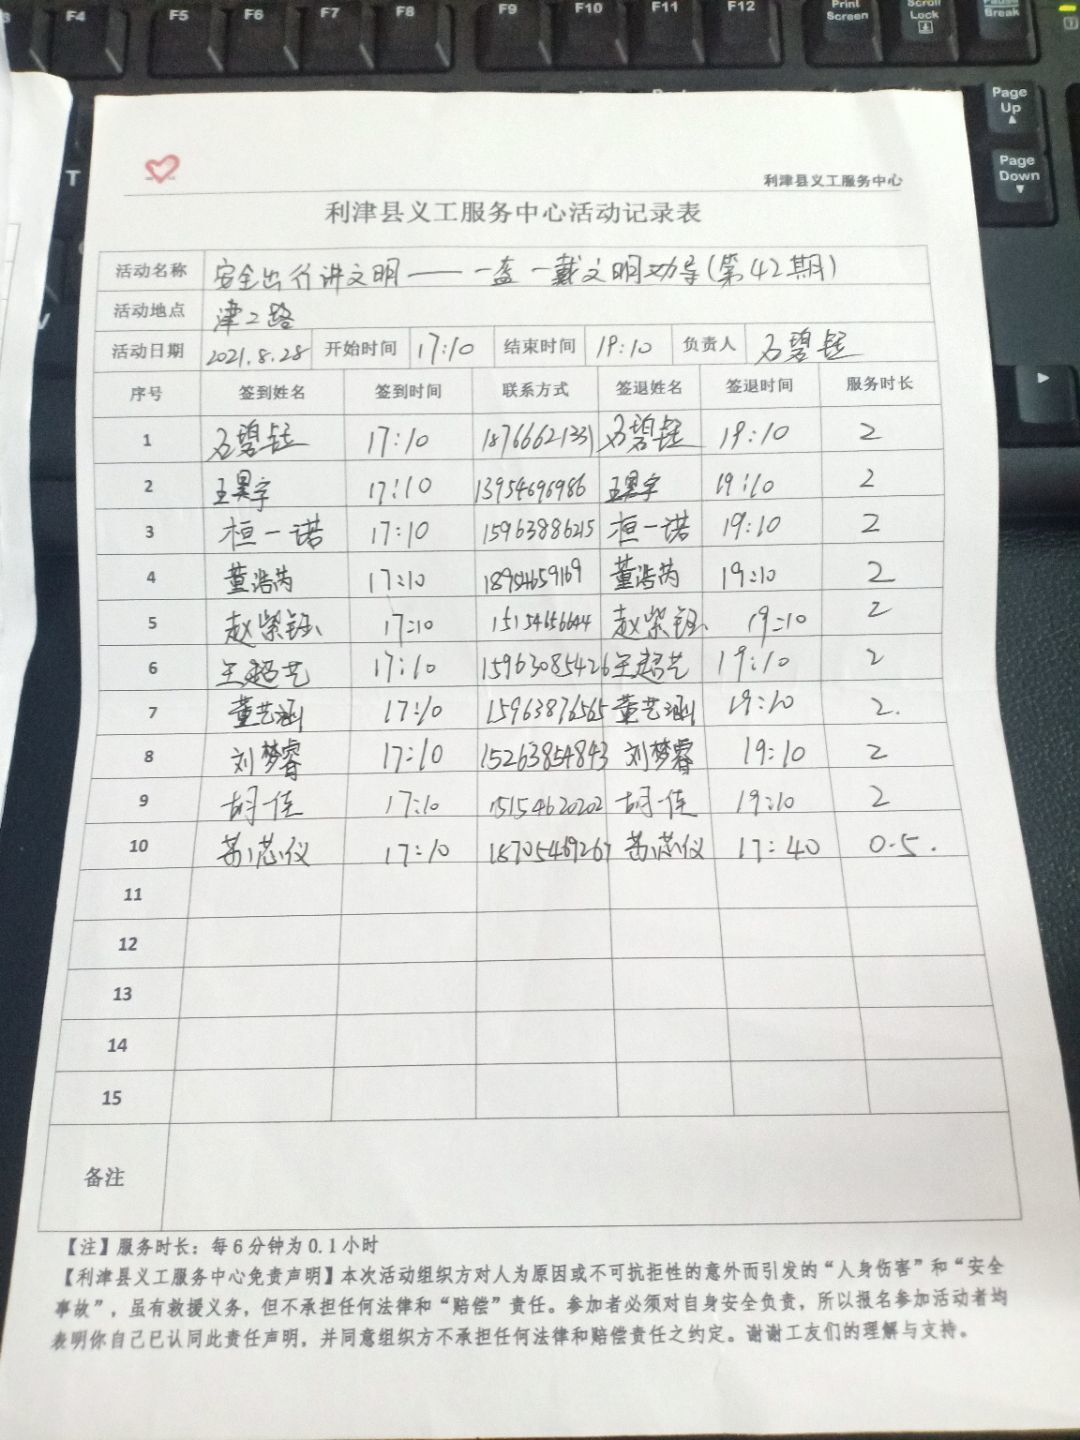 F4 F5 F6 F7 F8 F9 F10 F11 F12 Print Screen Scroll Lock Pause Break
Page Up
Page Down
T
利津县义工服务中心
利津县义工服务中心活动记录表
活动名称 安全出行讲文明——一盔一戴文明劝导(第42期)
活动地点 津二路
活动日期 2021.8.28 开始时间 17:10 结束时间 19:10 负责人 石碧钰
序号 签到姓名 签到时间 联系方式 签退姓名 签退时间 服务时长
1 石碧钰 17:10 18766621331 石碧钰 19:10 2
2 王昊宇 17:10 13954696986 王昊宇 19:10 2
3 桓一诺 17:10 15963886215 桓一诺 19:10 2
4 董浩芮 17:10 18954659169 董浩芮 19:10 2
5 赵紫钰 17:10 15154656644 赵紫钰 19:10 2
6 王超艺 17:10 15963085426 王超艺 19:10 2
7 董艺涵 17:10 15963876565 董艺涵 19:10 2.
8 刘梦睿 17:10 15263854843 刘梦睿 19:10 2
9 胡一佳 17:10 15154620202 胡一佳 19:10 2
10 苏芯仪 17:10 18705469267 苏芯仪 17:40 0.5.
11
12
13
14
15
备注
【注】服务时长：每6分钟为0.1小时
【利津县义工服务中心免责声明】本次活动组织方对人为原因或不可抗拒性的意外而引发的“人身伤害”和“安全
事故”，虽有救援义务，但不承担任何法律和“赔偿”责任。参加者必须对自身安全负责，所以报名参加活动者均
表明你自己已认同此责任声明，并同意组织方不承担任何法律和赔偿责任之约定。谢谢工友们的理解与支持。